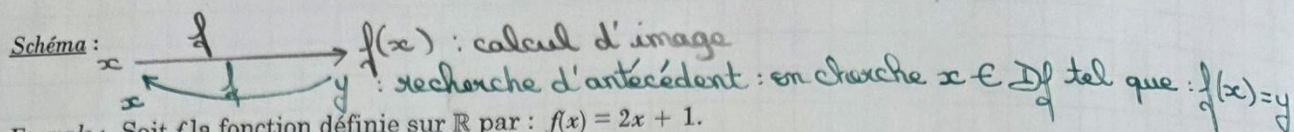 Schéma : x f f(x) : calcul d'image
x f y : recherche d'antécédent : on cherche x ∈ Df tel que : f(x)=y
Soit f la fonction définie sur ℝ par : f(x) = 2x + 1.